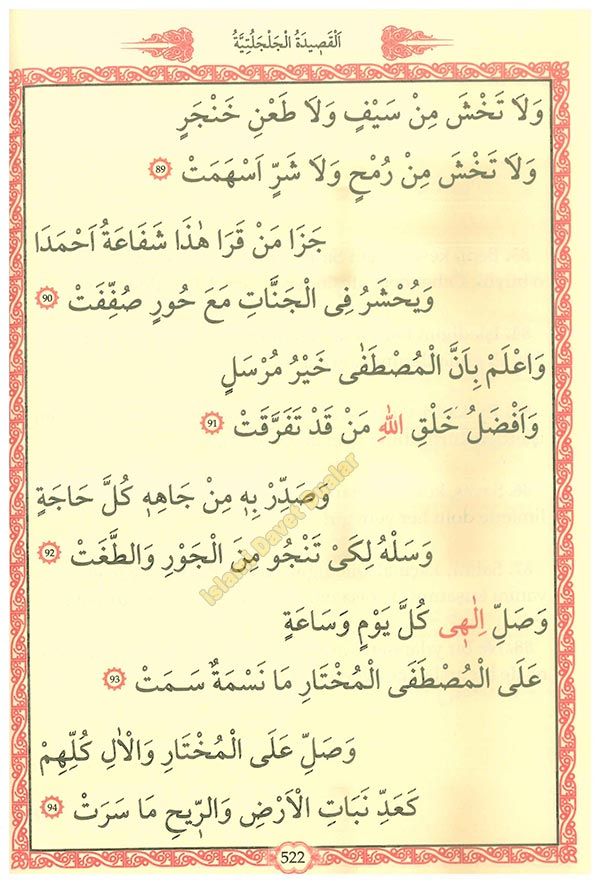 اَلْقَصِيدَةُ الْجَلْجَلُوتِيَّةُ
وَلَا تَخْشَ مِنْ سَيْفٍ وَلَا طَعْنِ خَنْجَرٍ
وَلَا تَخْشَ مِنْ رُمْحٍ وَلَا شَرٍّ اَسْهَمَتْ 89
جَزَا مَنْ قَرَا هٰذَا شَفَاعَةُ اَحْمَدَا
وَيُحْشَرُ فِى الْجَنَّاتِ مَعَ حُورٍ صُفِّفَتْ 90
وَاعْلَمْ بِاَنَّ الْمُصْطَفٰى خَيْرُ مُرْسَلٍ
وَاَفْضَلُ خَلْقِ اللهِ مَنْ قَدْ تَفَرَّقَتْ 91
وَصَدِّرْ بِهٖ مِنْ جَاهِهٖ كُلَّ حَاجَةٍ
وَسَلْهُ لِكَىْ تَنْجُو مِنَ الْجَوْرِ وَالطَّغَتْ 92
وَصَلِّ اِلٰهٖى كُلَّ يَوْمٍ وَسَاعَةٍ
عَلَى الْمُصْطَفَى الْمُخْتَارِ مَا نَسْمَةٌ سَمَتْ 93
وَصَلِّ عَلَى الْمُخْتَارِ وَالْاٰلِ كُلِّهِمْ
كَعَدِّ نَبَاتِ الْاَرْضِ وَالرّٖيحِ مَا سَرَتْ 94
522
Islami Davet Dualar